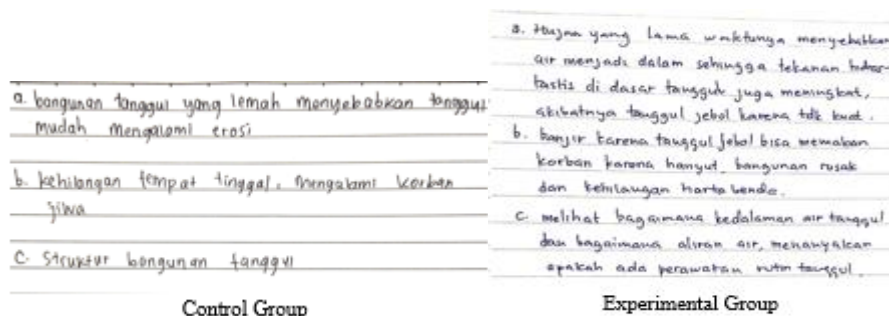 a. bangunan tanggul yang lemah menyebabkan tanggul
mudah mengalami erosi
b. kehilangan tempat tinggal, mengalami korban
jiwa
c. Struktur bangunan tanggul
Control Group
a. Hujan yang lama waktunya menyebabkan
air menjadi dalam sehingga tekanan hidros-
tastis di dasar tanggul juga meningkat,
akibatnya tanggul jebol karena tdk kuat.
b. banjir karena tanggul jebol bisa memakan
korban karena hanyut, bangunan rusak
dan kehilangan harta benda.
c. melihat bagaimana kedalaman air tanggul
dan bagaimana aliran air, menanyakan
apakah ada perawatan rutin tanggul.
Experimental Group